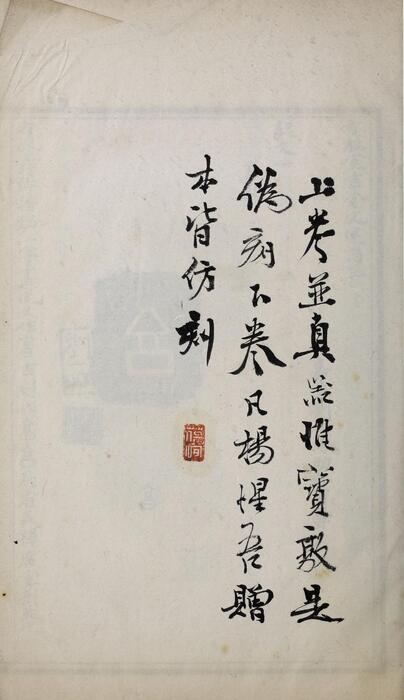 上卷並真器惟寶敦是
偽刻下卷凡楊惺吾贈
本皆仿刻